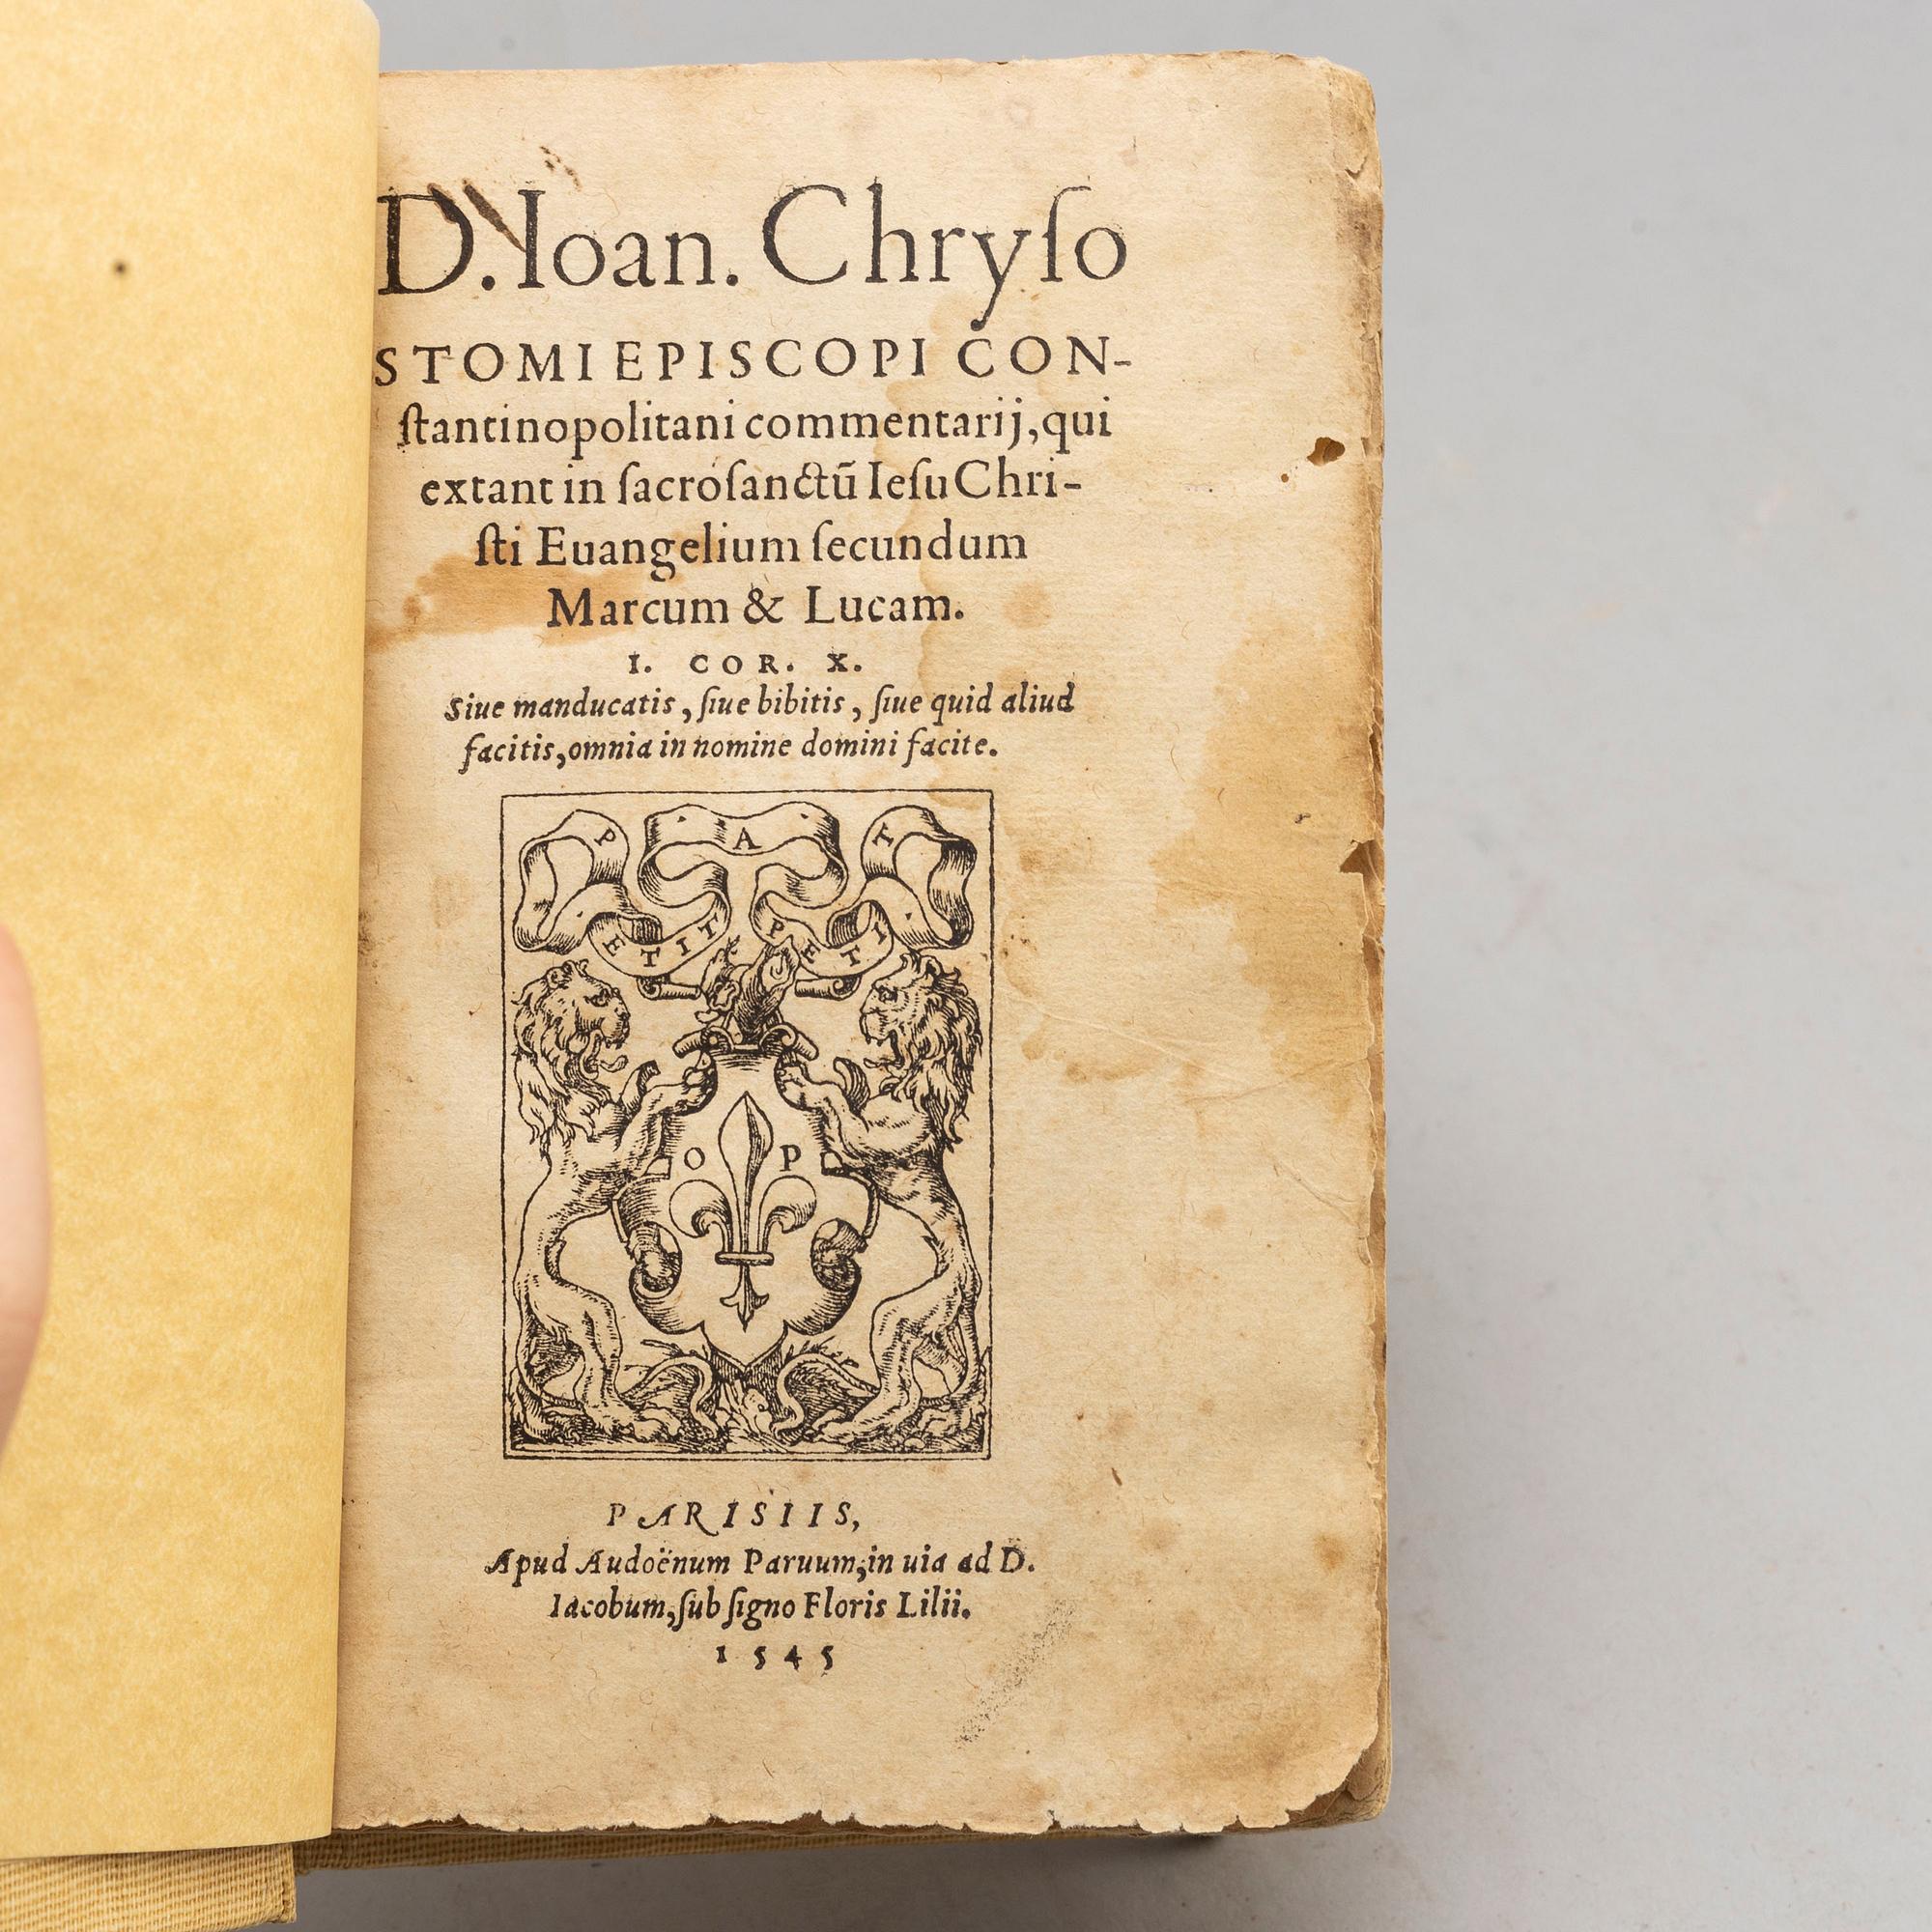 D. Ioan. Chryſo
STOMI EPISCOPI CON-
ſtantinopolitani commentarij, qui
extant in ſacroſanctū Ieſu Chri-
ſti Euangelium ſecundum
Marcum & Lucam.
I. COR. X.
Siue manducatis, ſiue bibitis, ſiue quid aliud
facitis, omnia in nomine domini facite.
P · A · T
ETIT PETI ·
O P
PARISIIS,
Apud Audoënum Paruum, in uia ad D.
Iacobum, ſub ſigno Floris Lilii.
1545